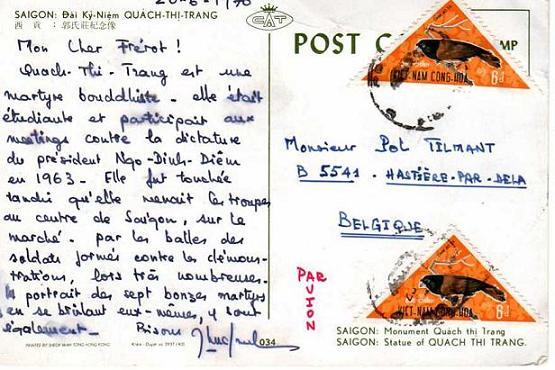 20-6-1970
SAIGON: Đài Kỷ-Niệm QUÁCH-THỊ-TRANG
西貢：郭氏莊紀念像
CAT
POST C
MP
Mon Cher Frérot !
Quach-Thi-Trang est une
martyre bouddhiste - elle était
étudiante et participait aux
meetings contre la dictature
du président Ngo-Dinh-Diêm
en 1963. Elle fut touchée
tandis qu'elle menait les troupes
au centre de Saïgon, sur le
marché. par les balles des
soldats formés contre les démons-
trations, lors très nombreuses.
le portrait des sept bonzes martyrs
en se brûlant eux-mêmes, y sont
également - Bisous
VIỆT-NAM CỘNG-HÒA
6đ
Monsieur Pol TILMANT
B 5541 - HASTIÈRE-PAR-DELA
BELGIQUE
PAR
AVION
VIỆT-NAM CỘNG-HÒA
6đ
034
SAIGON: Monument Quách thị Trang
SAIGON: Statue of QUACH THI TRANG.